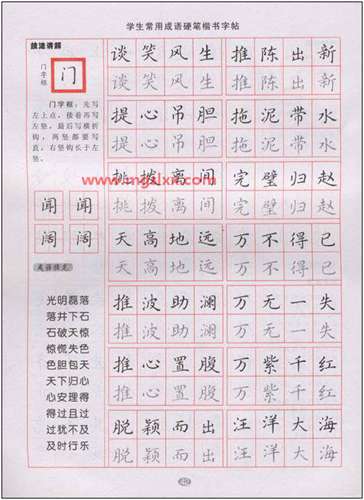 学生常用成语硬笔楷书字帖
技法讲解
门字框
门
门字框：先写
左上点，接着再写
左竖，最后写横折
钩，两竖都要写
直，右竖钩长于左
竖。
闻 闻
阔 阔
成语填充
光明磊落
落井下石
石破天惊
惊慌失色
色胆包天
天下归心
心安理得
得过且过
过犹不及
及时行乐
谈笑风生 推陈出新
谈笑风生 推陈出新
提心吊胆 拖泥带水
提心吊胆 拖泥带水
挑拨离间 完璧归赵
挑拨离间 完璧归赵
天高地远 万不得已
天高地远 万不得已
推波助澜 万无一失
推波助澜 万无一失
推心置腹 万紫千红
推心置腹 万紫千红
脱颖而出 汪洋大海
脱颖而出 汪洋大海